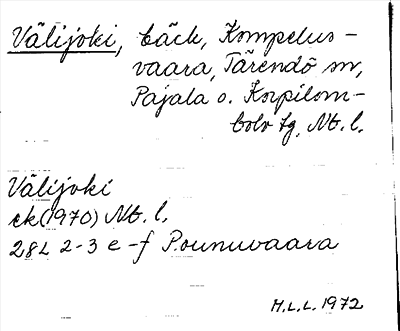 Välijoki, bäck, Kompelus-
vaara, Tärendö sn,
Pajala o. Korpilom-
bolo tg, Nb. l.
Välijoki
ek (1970) Nb. l.
28L 2-3 e-f Pounuvaara
H.L.L. 1972